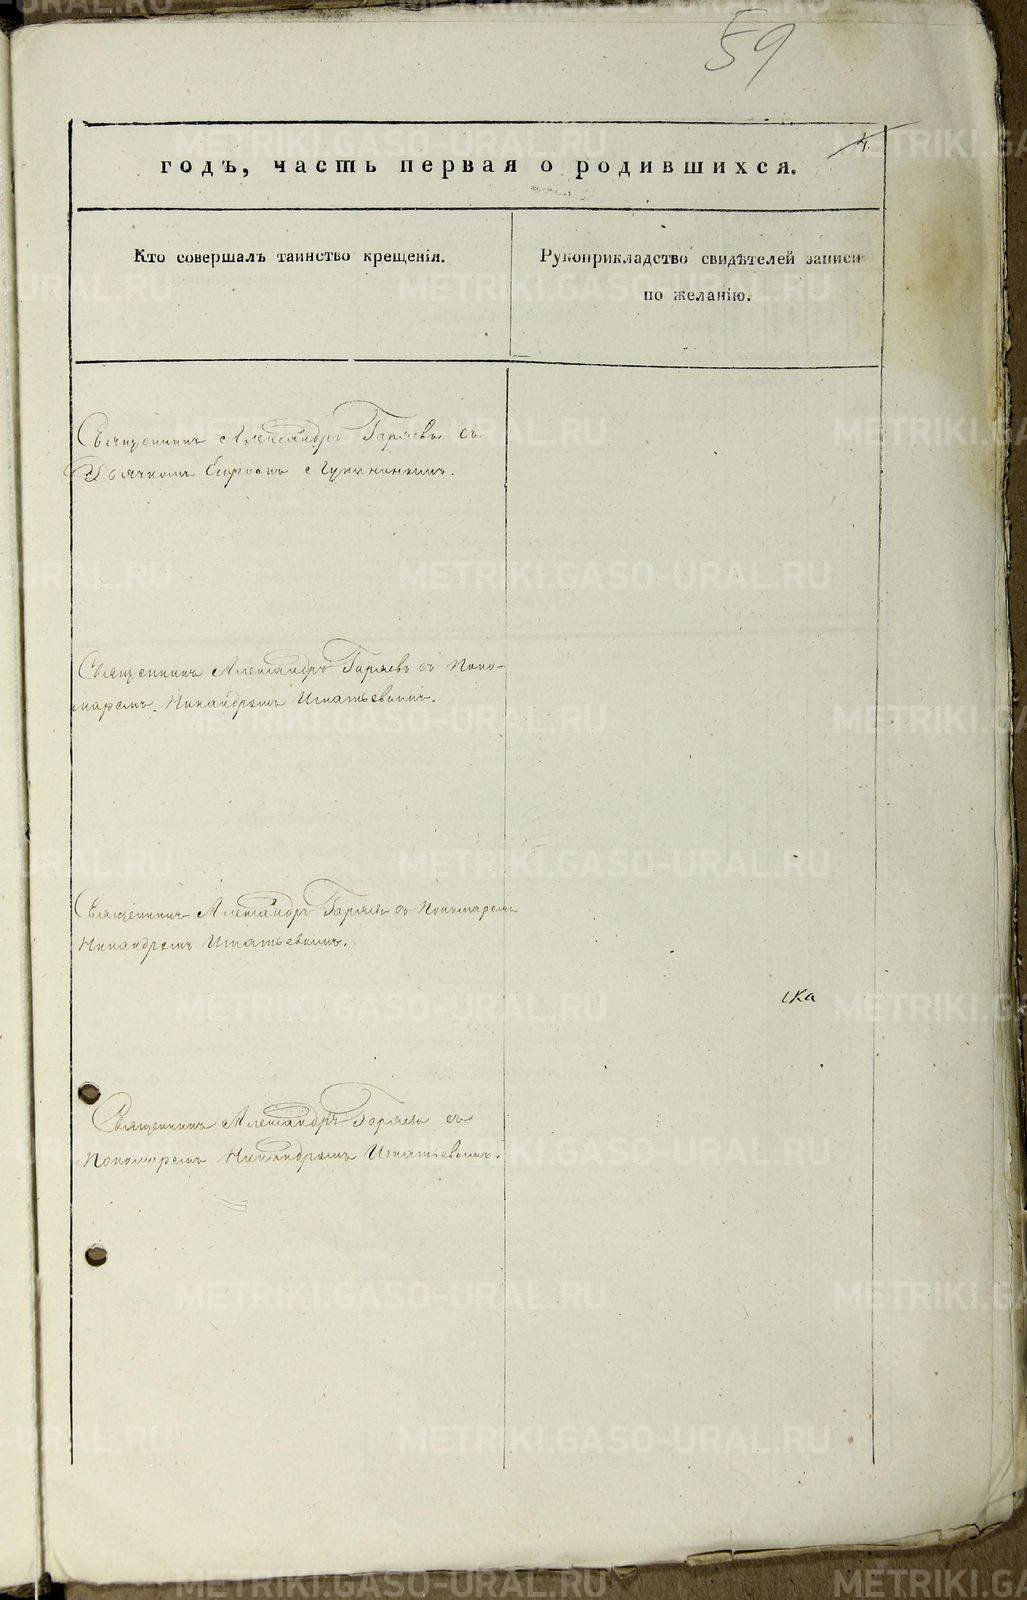 59
4.
годъ, часть первая о родившихся.
Кто совершалъ таинство крещенія.
Рукоприкладство свидѣтелей записи
по желанію.
Священникъ Александръ Гаряевъ съ
Дьячкомъ
Священникъ Александръ Гаряевъ съ Поно-
маремъ Никандромъ Игнатьевымъ.
Священникъ Александръ Гаряевъ съ Пономаремъ
Никандромъ Игнатьевымъ.
Священникъ Александръ Гаряевъ съ
Пономаремъ Никандромъ Игнатьевымъ.
METRIKI.GASO-URAL.RU